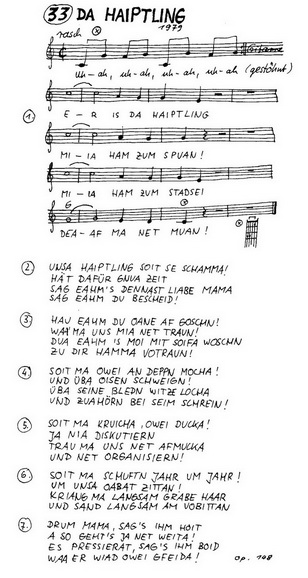 33 DA HAIPTLING
1979
rasch
Uh-ah, uh-ah, uh-ah, uh-ah (gestöhnt)
Gitarre
1. E - R IS DA HAIPTLING
MI - IA HAM ZUM SPUAN!
MI - IA HAM ZUM STADSEI
G
DEA- AF MA NET MUAN!
2. UNSA HAIPTLING SOIT SE SCHAMMA!
HÄT DAFÜR GNUA ZEIT
SAG EAHM'S DENNAST LIABE MAMA
SAG EAHM DU BESCHEID!
3. HAU EAHM DU OANE AF GOSCHN!
WAÄ'MA UNS MIA NET TRAUN!
DUA EAHM IS MOI MIT SOIFA WOSCHN
ZU DIR HAMMA VOTRAUN!
4. SOIT MA OWEI AN DEPPN MOCHA!
UND ÜBA OISEN SCHWEIGN!
ÜBA SEINE BLEDN WITZE LOCHA
UND ZUAHÖRN BEI SEIM SCHREIN!
5. SOIT MA KRUICHA, OWEI DUCKA!
JA NIA DISKUTIERN
TRAU MA UNS NET AFMUCKA
UND NET ORGANISIERN!
6. SOIT MA SCHUFTN JAHR UM JAHR!
UM UNSA OABAT ZITTAN!
KRIANG MA LANGSAM GRABE HAAR
UND SAND LANGSAM AM VOBITTAN
7. DRUM MAMA, SAG'S IHM HOIT
A SO GEHT'S JA NET WEITA!
ES PRESSIERAT, SAG'S IHM BOID
WAA ER WIAD OWEI GFEIDA!
Op. 108